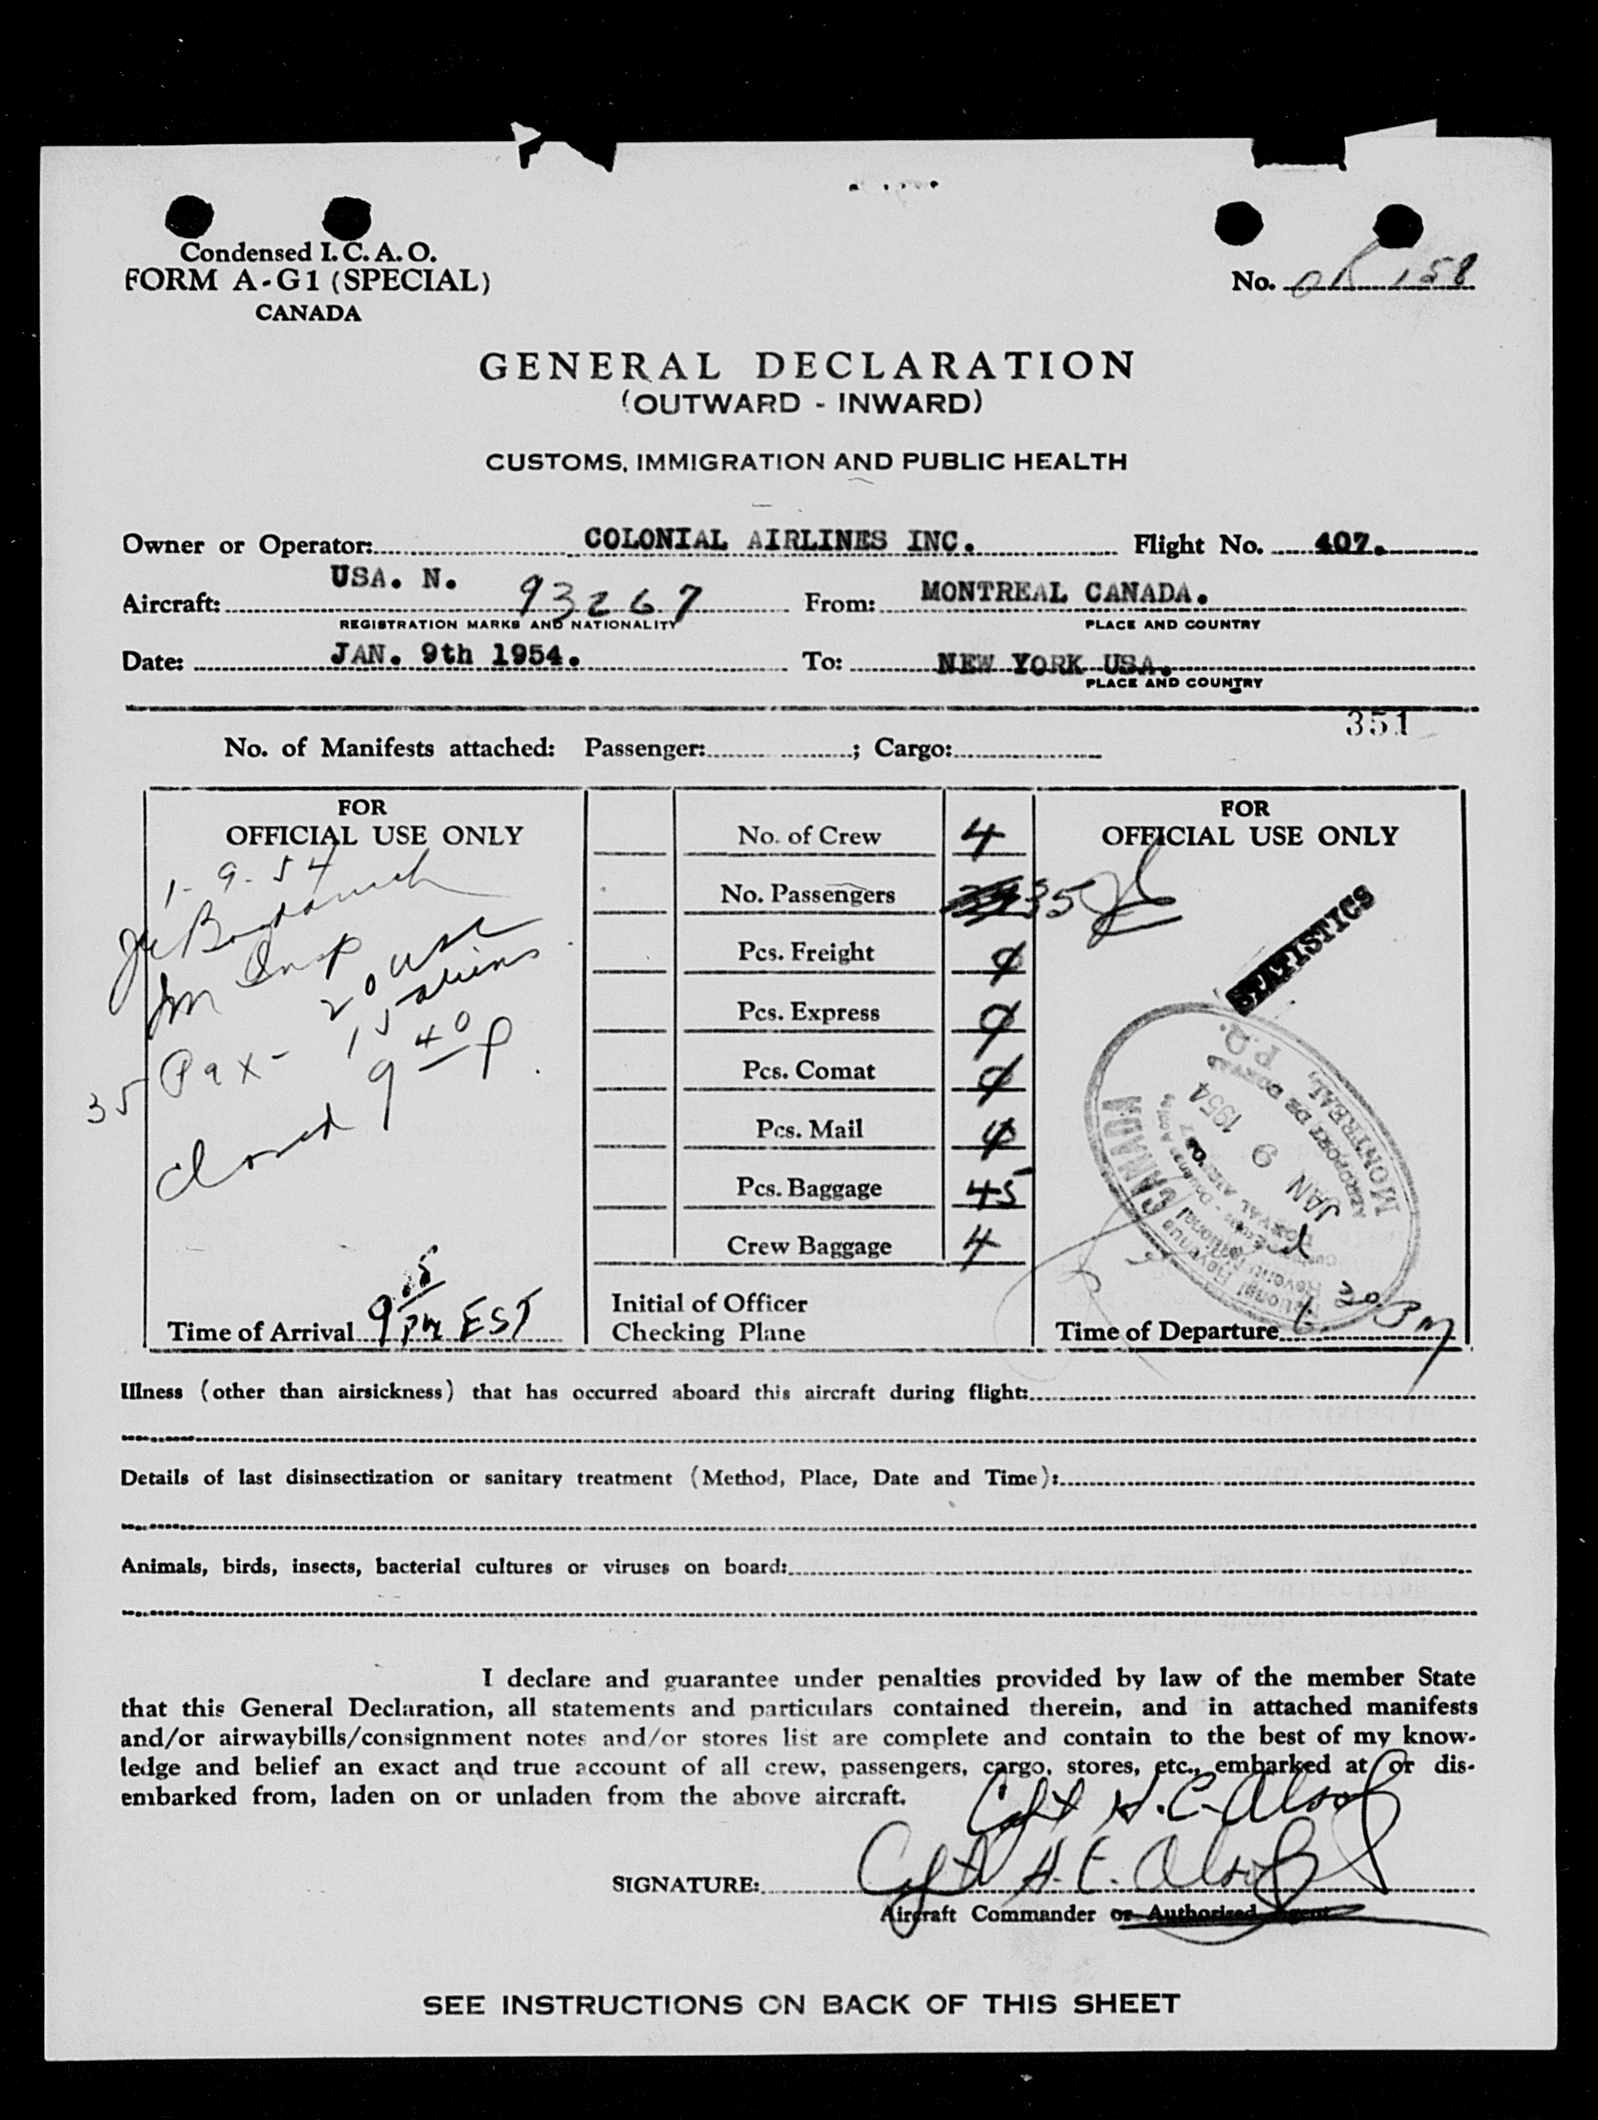 Condensed I. C. A. O.
FORM A-G1 (SPECIAL)
CANADA
No. 158
GENERAL DECLARATION
(OUTWARD - INWARD)
CUSTOMS, IMMIGRATION AND PUBLIC HEALTH
Owner or Operator: COLONIAL AIRLINES INC. Flight No. 407.
Aircraft: USA. N. 93267 From: MONTREAL CANADA.
REGISTRATION MARKS AND NATIONALITY PLACE AND COUNTRY
Date: JAN. 9th 1954. To: NEW YORK USA.
PLACE AND COUNTRY
351
No. of Manifests attached: Passenger: ; Cargo:
FOR
OFFICIAL USE ONLY
1-9-54
Insp
20 USC
15 aliens
35 Pax-
closed 9 40 P
Time of Arrival 9 05 PM EST
No. of Crew 4
No. Passengers 35
Pcs. Freight 0
Pcs. Express 0
Pcs. Comat 0
Pcs. Mail 0
Pcs. Baggage 45
Crew Baggage 4
Initial of Officer
Checking Plane
FOR
OFFICIAL USE ONLY
STATISTICS
CANADA
JAN 9 1954
AEROPORT DE DORVAL
MONTREAL, P.Q.
Time of Departure 30 PM
Illness (other than airsickness) that has occurred aboard this aircraft during flight:
Details of last disinsectization or sanitary treatment (Method, Place, Date and Time):
Animals, birds, insects, bacterial cultures or viruses on board:
I declare and guarantee under penalties provided by law of the member State
that this General Declaration, all statements and particulars contained therein, and in attached manifests
and/or airwaybills/consignment notes and/or stores list are complete and contain to the best of my know-
ledge and belief an exact and true account of all crew, passengers, cargo, stores, etc., embarked at or dis-
embarked from, laden on or unladen from the above aircraft.
Capt
SIGNATURE: Capt
Aircraft Commander or Authorized Agent
SEE INSTRUCTIONS ON BACK OF THIS SHEET